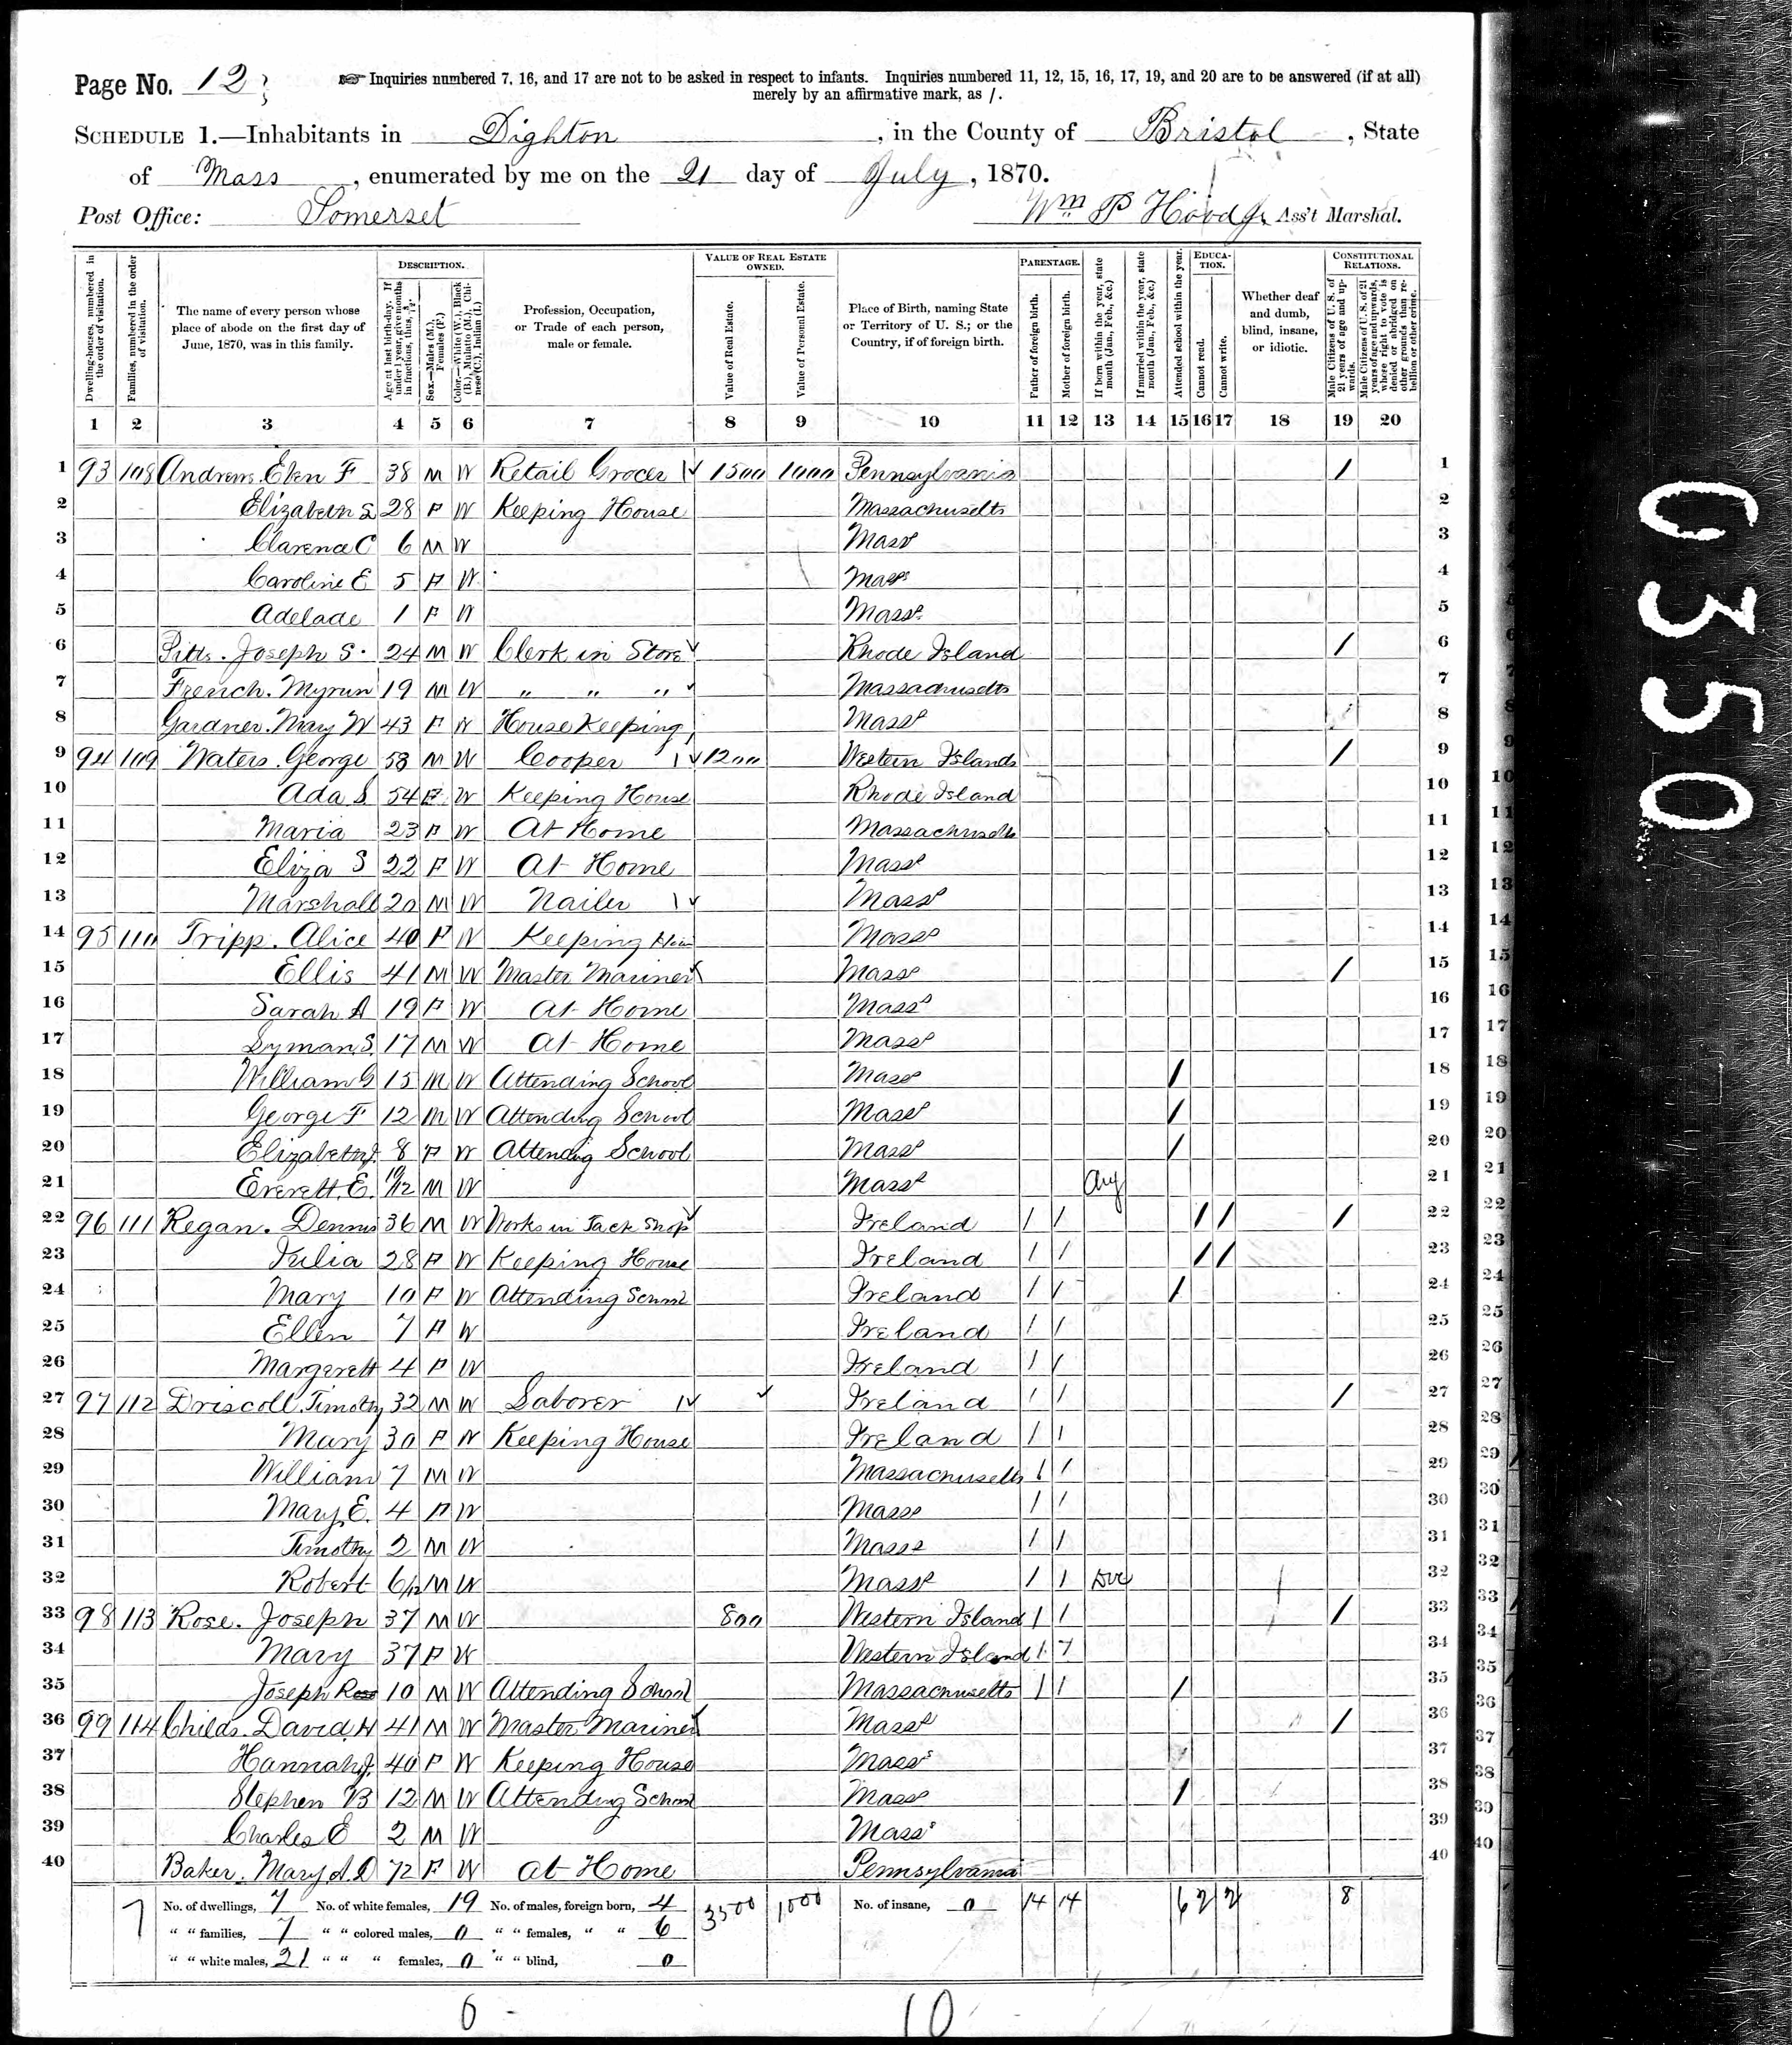 Page No. 12
☞ Inquiries numbered 7, 16, and 17 are not to be asked in respect to infants. Inquiries numbered 11, 12, 15, 16, 17, 19, and 20 are to be answered (if at all)
merely by an affirmative mark, as /.
SCHEDULE 1.—Inhabitants in Dighton, in the County of Bristol, State
of Mass, enumerated by me on the 21 day of July, 1870.
Post Office: Somerset Wm P Hood Jr. Ass't Marshal.
Dwelling-houses, numbered in the order of visitation.
Families, numbered in the order of visitation.
The name of every person whose place of abode on the first day of June, 1870, was in this family.
DESCRIPTION.
Age at last birth-day. If under 1 year, give months in fractions, thus, 3/12.
Sex.—Males (M.), Females (F.)
Color.—White (W.), Black (B.), Mulatto (M.), Chinese (C.), Indian (I.)
Profession, Occupation, or Trade of each person, male or female.
VALUE OF REAL ESTATE OWNED.
Value of Real Estate.
Value of Personal Estate.
Place of Birth, naming State or Territory of U. S.; or the Country, if of foreign birth.
PARENTAGE.
Father of foreign birth.
Mother of foreign birth.
If born within the year, state month (Jan., Feb., &c.)
If married within the year, state month (Jan., Feb., &c.)
Attended school within the year.
EDUCATION.
Cannot read.
Cannot write.
Whether deaf and dumb, blind, insane, or idiotic.
CONSTITUTIONAL RELATIONS.
Male Citizens of U. S. of 21 years of age and upwards.
Male Citizens of U. S. of 21 years of age and upwards, where right to vote is denied or abridged on other grounds than rebellion or other crime.
1 2 3 4 5 6 7 8 9 10 11 12 13 14 15 16 17 18 19 20
1 93 108 Andrews Eben F 38 M W Retail Grocer 1500 1000 Pennsylvania / 1
2 Elizabeth S 28 F W Keeping House Massachusetts 2
3 Clarence C 6 M W Mass 3
4 Caroline E 5 F W Mass 4
5 Adelade 1 F W Mass 5
6 Pitts. Joseph S. 24 M W Clerk in Store Rhode Island / 6
7 French. Myrun 19 M W " " " Massachusetts 7
8 Gardner. Mary W 43 F W House Keeping Mass 8
9 94 109 Waters. George 58 M W Cooper 1200 Western Islands / 9
10 Ada S 54 F W Keeping House Rhode Island 10
11 Maria 23 F W At Home Massachusetts 11
12 Eliza S 22 F W At Home Mass 12
13 Marshall 20 M W Nailer Mass 13
14 95 110 Tripp. Alice 40 F W Keeping Mass 14
15 Ellis 41 M W Master Mariner Mass / 15
16 Sarah A 19 F W At Home Mass 16
17 Lyman S. 17 M W At Home Mass 17
18 William G 15 M W Attending School Mass / 18
19 George F 12 M W Attending School Mass / 19
20 Elizabeth J. 8 F W Attending School Mass / 20
21 Everett E. 10/12 M W Mass Aug 21
22 96 111 Regan. Dennis 36 M W Works in Tack Shop Ireland / / / / / 22
23 Julia 28 F W Keeping House Ireland / / / / 23
24 Mary 10 F W Attending School Ireland / / / 24
25 Ellen 7 F W Ireland / / 25
26 Margerett 4 F W Ireland / / 26
27 97 112 Driscoll. Timothy 32 M W Laborer Ireland / / / 27
28 Mary 30 F W Keeping House Ireland / / 28
29 William 7 M W Massachusetts / / 29
30 Mary E. 4 F W Mass / / 30
31 Timothy 2 M W Mass / / 31
32 Robert 6/12 M W Mass / / Dec 32
33 98 113 Rose. Joseph 37 M W 800 Western Island / / / 33
34 Mary 37 F W Western Island / / 34
35 Joseph 10 M W Attending School Massachusetts / / / 35
36 99 114 Childs. David H 41 M W Master Mariner Mass / 36
37 Hannah J. 40 F W Keeping House Mass 37
38 Stephen B 12 M W Attending School Mass / 38
39 Charles E 2 M W Mass 39
40 Baker. Mary A. D 72 F W at Home Pennsylvania 40
No. of dwellings, 7 No. of white females, 19 No. of males, foreign born, 4 3500 1000 No. of insane, 0 14 14 6 2 2 8
" " families, 7 " " colored males, 0 " " females, " " 6
" " white males, 21 " " " females, 0 " " blind, 0
6 - 10
0350